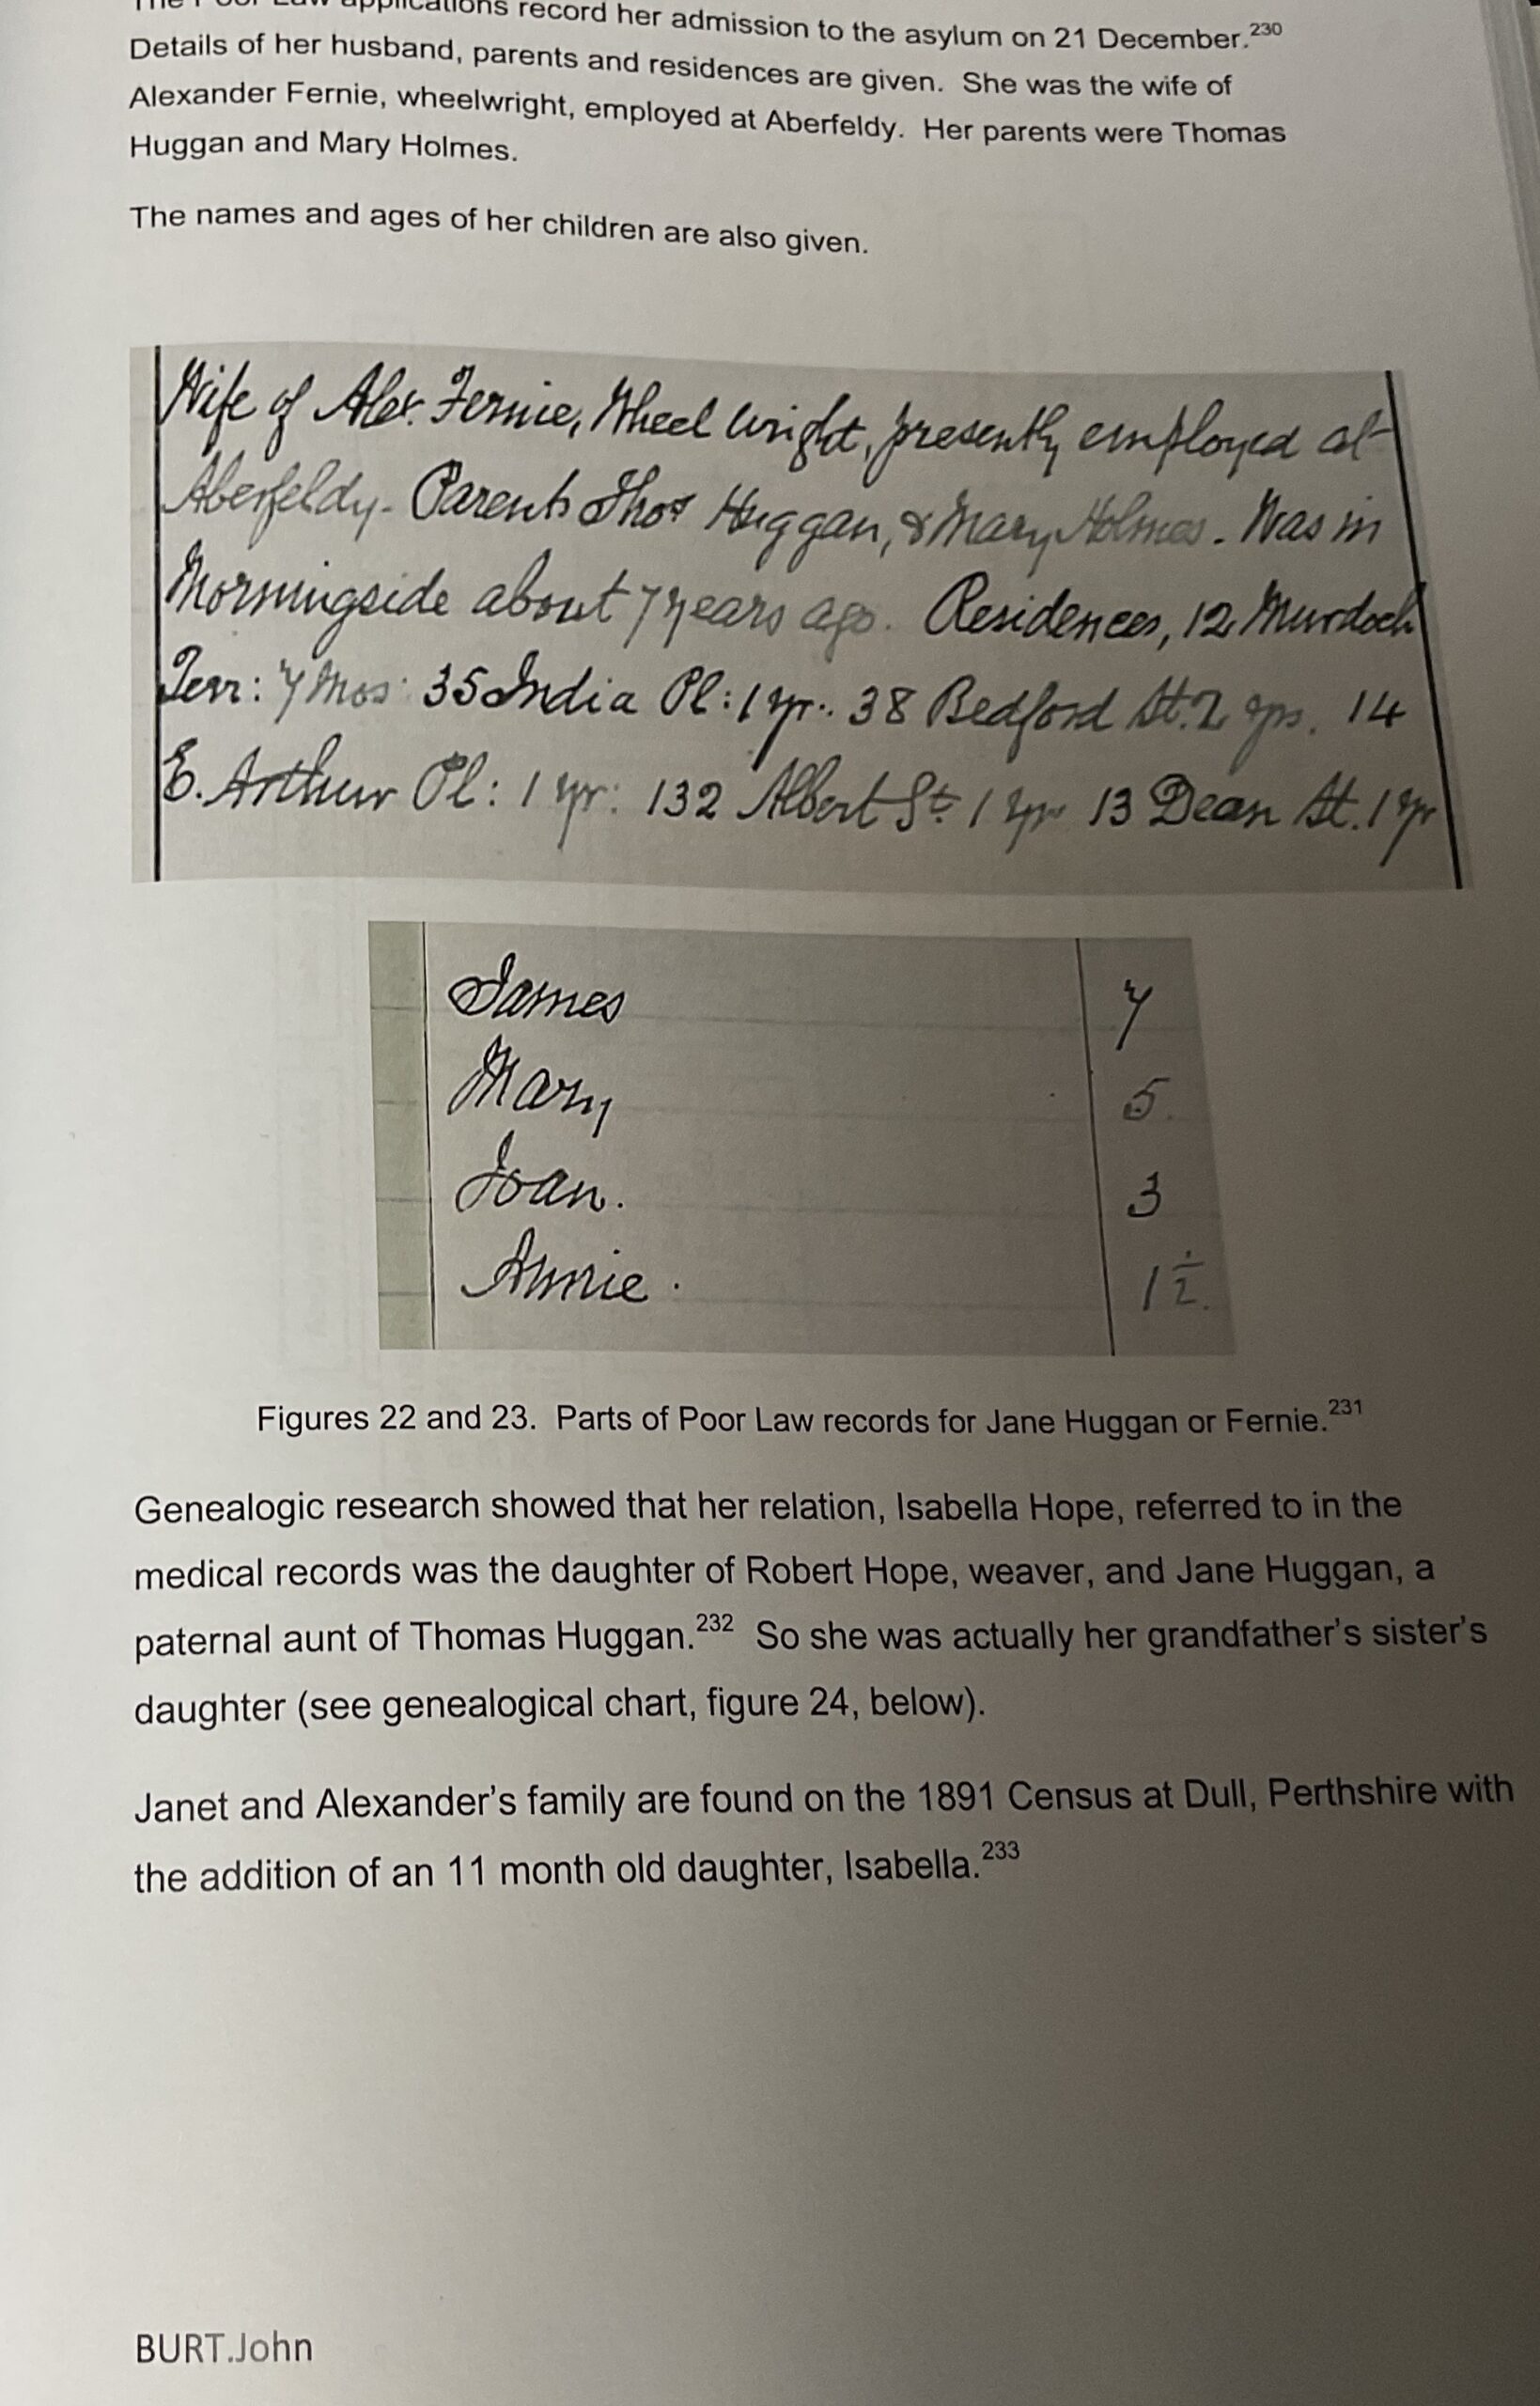 The Poor Law applications record her admission to the asylum on 21 December.230
Details of her husband, parents and residences are given. She was the wife of
Alexander Fernie, wheelwright, employed at Aberfeldy. Her parents were Thomas
Huggan and Mary Holmes.
The names and ages of her children are also given.
Wife of Alex. Fernie, Wheel wright, presently employed at
Aberfeldy. Parents Thos Huggan, & Mary Holmes. Was in
Morningside about 7 years ago. Residences, 12 Murdoch
Terr: 7 Mos: 35 India Pl: 1 yr. 38 Bedford St. 2 yrs. 14
E. Arthur Pl: 1 yr: 132 Albert St 1 yr 13 Dean St. 1 yr
James 7
Mary 5.
Joan. 3
Annie. 1 1/2.
Figures 22 and 23. Parts of Poor Law records for Jane Huggan or Fernie.231
Genealogic research showed that her relation, Isabella Hope, referred to in the
medical records was the daughter of Robert Hope, weaver, and Jane Huggan, a
paternal aunt of Thomas Huggan.232 So she was actually her grandfather's sister's
daughter (see genealogical chart, figure 24, below).
Janet and Alexander's family are found on the 1891 Census at Dull, Perthshire with
the addition of an 11 month old daughter, Isabella.233
BURT.John